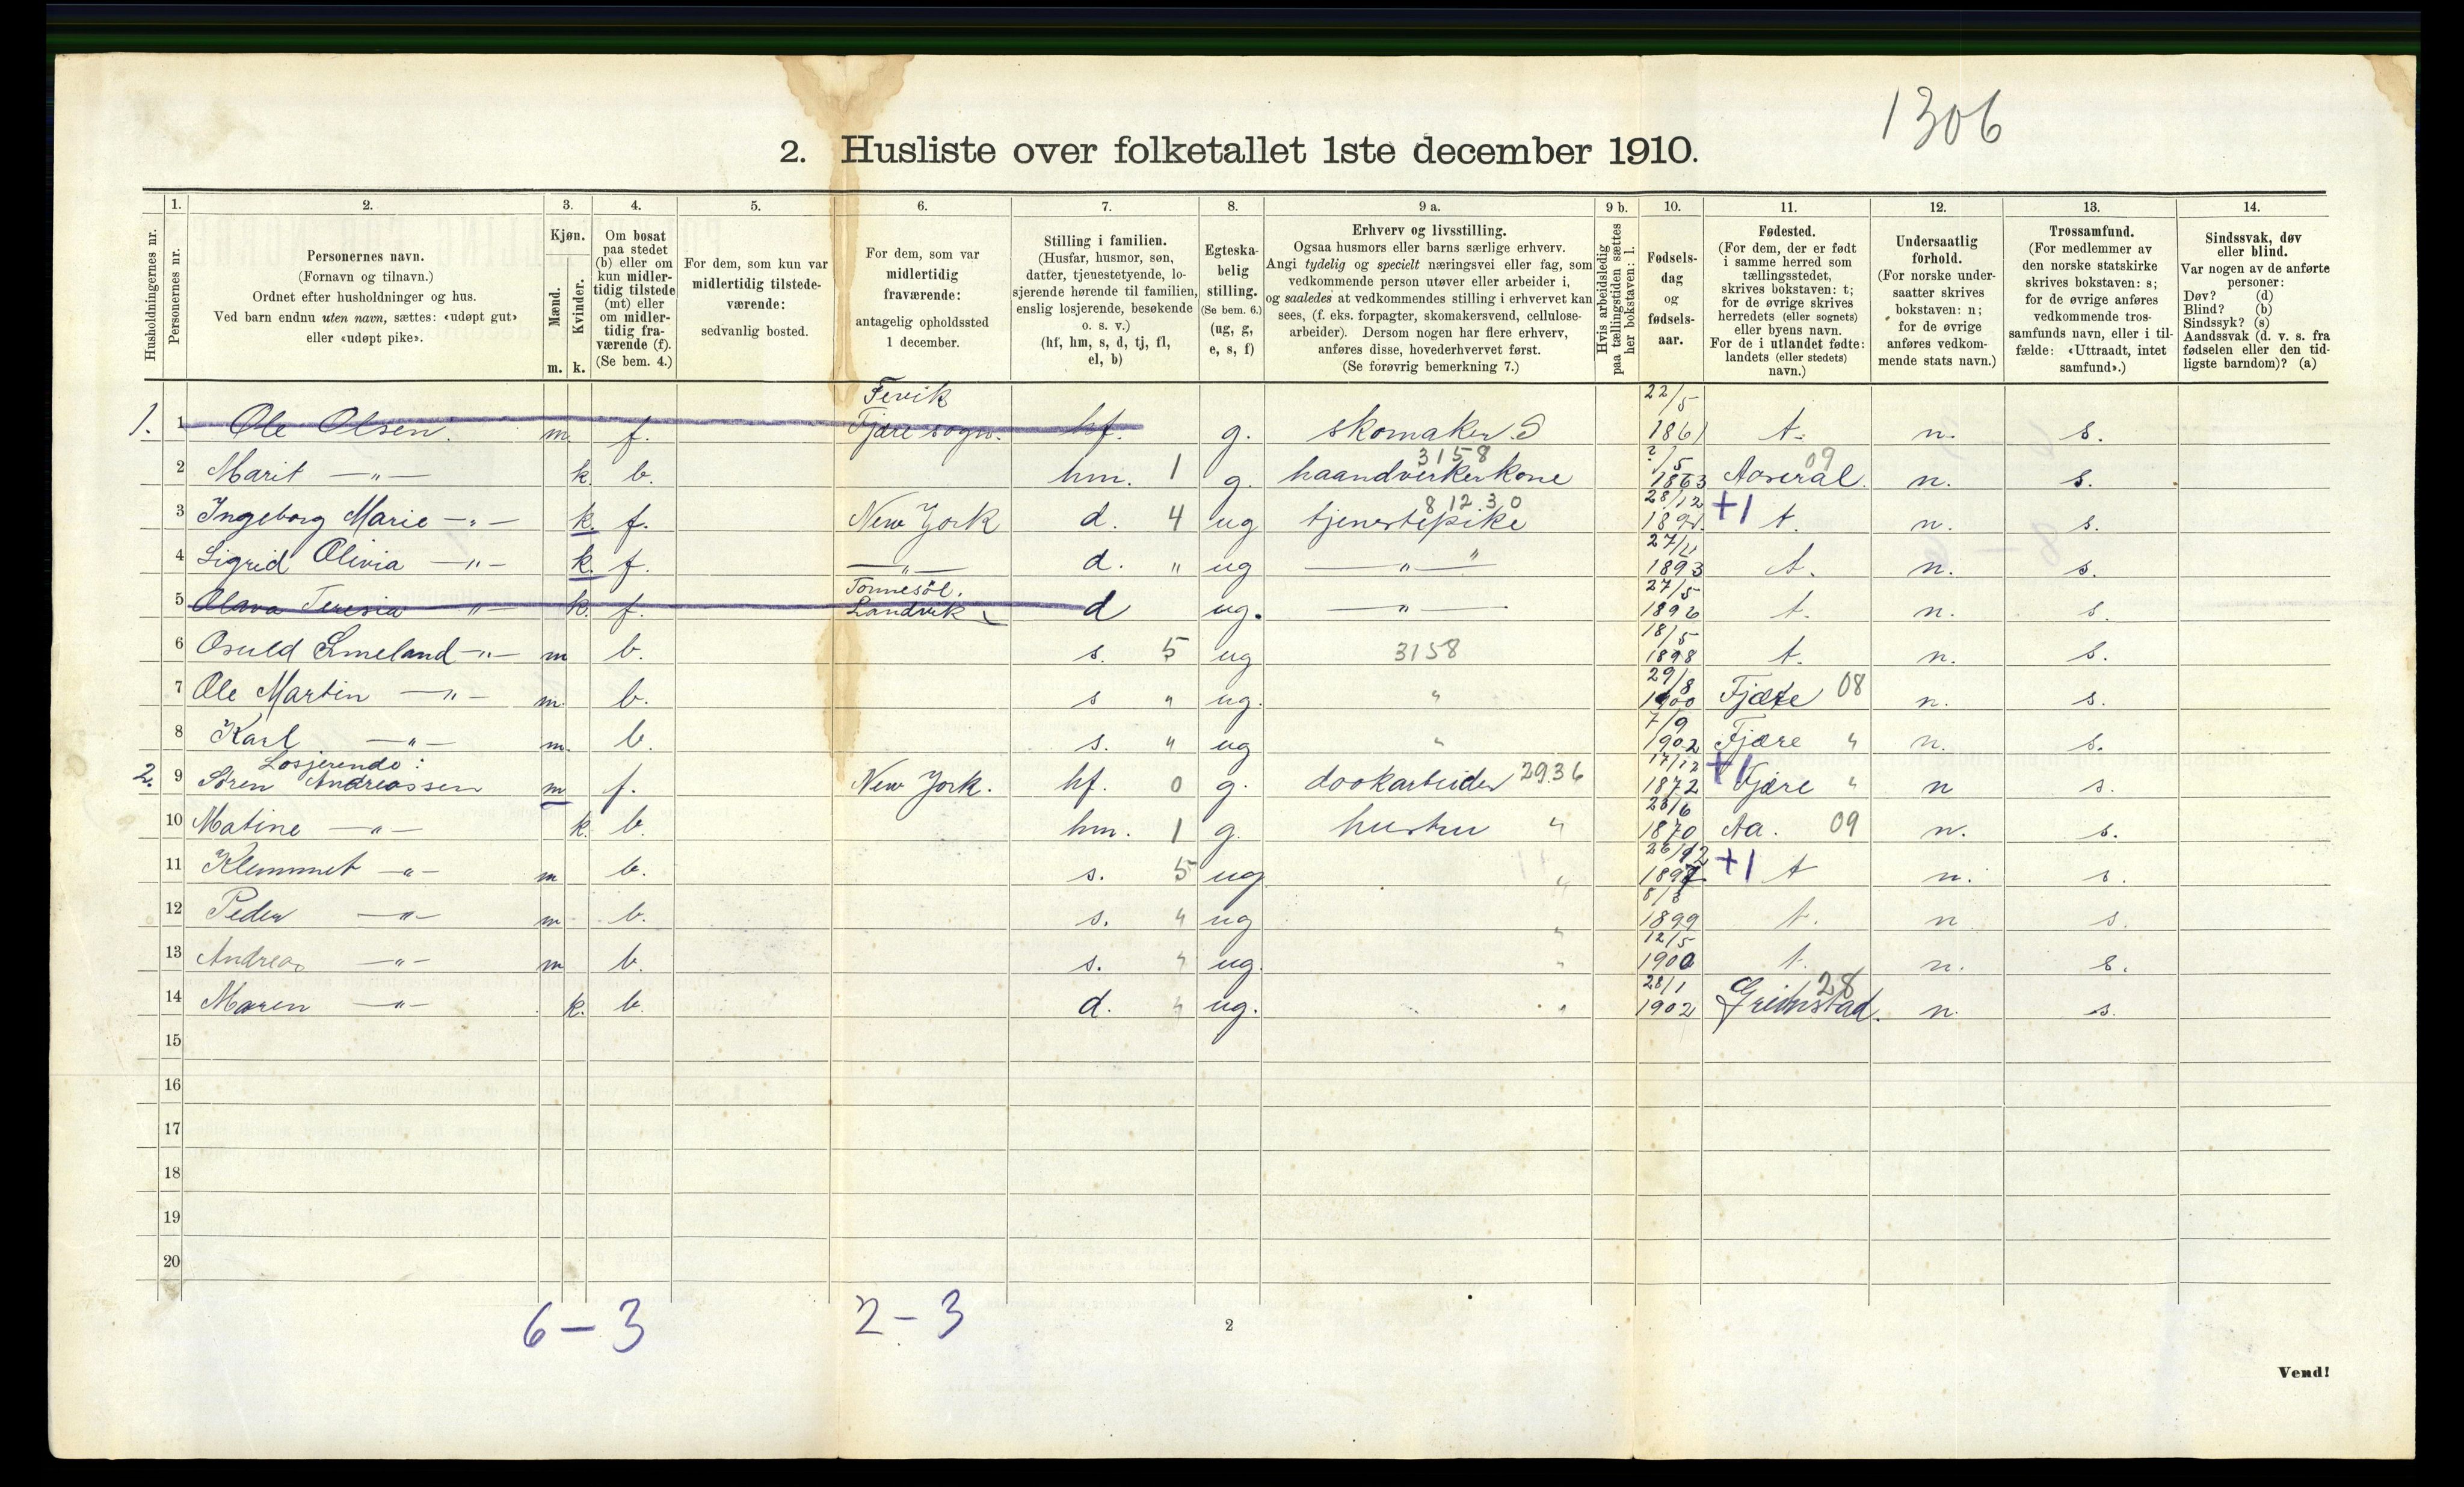 1306
2. Husliste over folketallet 1ste december 1910.
Husholdningernes nr.
1.
Personernes nr.
2.
Personernes navn.
(Fornavn og tilnavn.)
Ordnet efter husholdninger og hus.
Ved barn endnu uten navn, sættes: «udøpt gut»
eller «udøpt pike».
3.
Kjøn.
Mænd.
Kvinder.
m. k.
4.
Om bosat
paa stedet
(b) eller om
kun midler-
tidig tilstede
(mt) eller
om midler-
tidig fra-
værende (f).
(Se bem. 4.)
5.
For dem, som kun var
midlertidig tilstede-
værende:
sedvanlig bosted.
6.
For dem, som var
midlertidig
fraværende:
antagelig opholdssted
1 december.
7.
Stilling i familien.
(Husfar, husmor, søn,
datter, tjenestetyende, lo-
sjerende hørende til familien,
enslig losjerende, besøkende
o. s. v.)
(hf, hm, s, d, tj, fl,
el, b)
8.
Egteska-
belig
stilling.
(Se bem. 6.)
(ug, g,
e, s, f)
9 a.
Erhverv og livsstilling.
Ogsaa husmors eller barns særlige erhverv.
Angi tydelig og specielt næringsvei eller fag, som
vedkommende person utøver eller arbeider i,
og saaledes at vedkommendes stilling i erhvervet kan
sees, (f. eks. forpagter, skomakersvend, cellulose-
arbeider). Dersom nogen har flere erhverv,
anføres disse, hovederhvervet først.
(Se forøvrig bemerkning 7.)
9 b.
Hvis arbeidsledig
paa tællingstiden sættes
her bokstaven: l.
10.
Fødsels-
dag
og
fødsels-
aar.
11.
Fødested.
(For dem, der er født
i samme herred som
tællingsstedet,
skrives bokstaven: t;
for de øvrige skrives
herredets (eller sognets)
eller byens navn.
For de i utlandet fødte:
landets (eller stedets)
navn.)
12.
Undersaatlig
forhold.
(For norske under-
saatter skrives
bokstaven: n;
for de øvrige
anføres vedkom-
mende stats navn.)
13.
Trossamfund.
(For medlemmer av
den norske statskirke
skrives bokstaven: s;
for de øvrige anføres
vedkommende tros-
samfunds navn, eller i til-
fælde: «Uttraadt, intet
samfund».)
14.
Sindssvak, døv
eller blind.
Var nogen av de anførte
personer:
Døv? (d)
Blind? (b)
Sindssyk? (s)
Aandssvak (d. v. s. fra
fødselen eller den tid-
ligste barndom)? (a)
Fevik 22/5
1. 1 Ole Olsen. m. f. Fjære sogn. hf. g. skomaker S 1861 t. n. s.
3158 ?/5 09
2 Marit —„— k. b. hm. 1 g. haandverkerkone 1863 Aaseral. n. s.
812.30 28/12
3 Ingeborg Marie —„— k. f. New York d. 4 ug tjenestepike 189 +1 t. n. s.
27/11
4 Sigrid Olivia —„— k. f. —„— d. „ ug —„— „ 1893 t. n. s.
Tonnesöl. 27/5
5 Olava Teresia —„— k. f. Landvik d ug. —„— 1896 t. n. s.
18/5
6 Osuld Smeland —„— m b. s. 5 ug 3158 1898 t. n. s.
29/8
7 Ole Martin —„— m. b. s „ ug. „ 1900 Fjære 08 n. s.
7/9
8 Karl —„— m. b. s. „ ug „ 1902 Fjære „ n. s.
Losjerende: 17/12
2. 9 Søren Andreassen m f. New York. hf. 0 g. dookarbeider 29.36 1872 +1 Fjære „ n s.
23/6
10 Matine —„— k. b. hm. 1 g. hustru „ 1870 Aa. 09 n. s.
26/12
11 Klemmet —„— m b. s. 5 ug „ 1897 +1 t n. s.
8/3
12 Peder —„— m b. s. „ ug „ 1899 t. n s
12/5
13 Andreas —„— m b. s. „ ug. „ 1900 t. n. s.
28/1 28
14 Maren —„— k. b d. „ ug. „ 1902 Grimstad. n. s.
15
16
17
18
19
20
6 – 3 2 – 3
2
Vend!